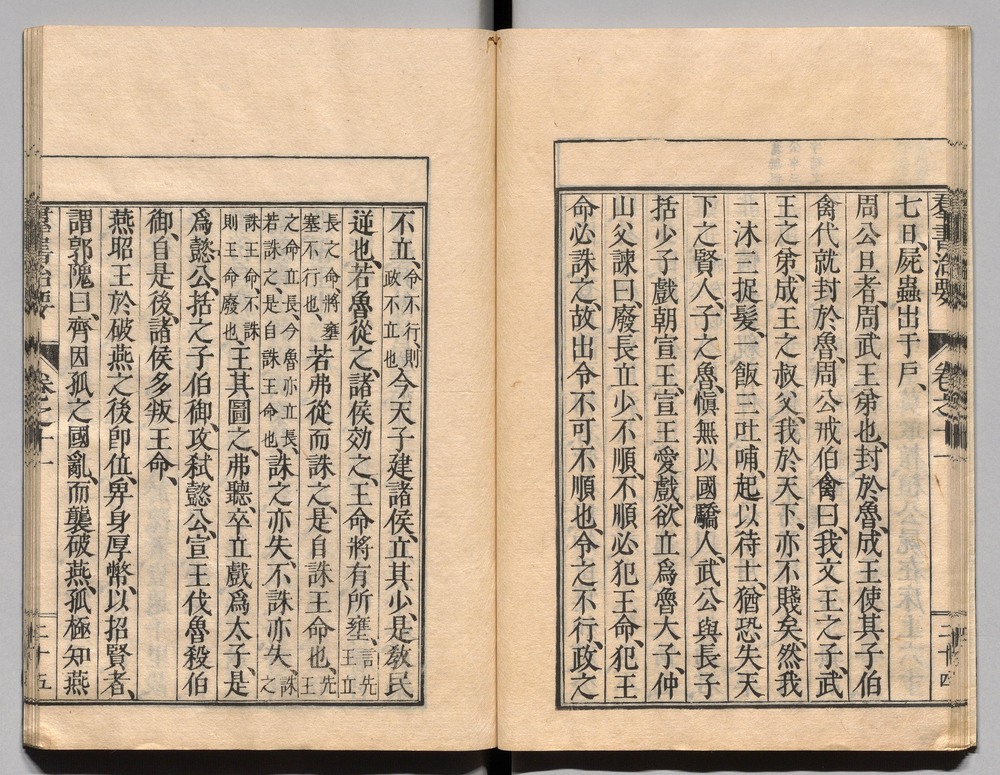 羣書治要 卷之十一 二十四
七日、屍蟲出于戶、
周公旦者、周武王弟也、封於魯、成王使其子伯
禽代就封於魯、周公戒伯禽曰、我文王之子、武
王之弟、成王之叔父、我於天下、亦不賤矣、然我
一沐三捉髮、一飯三吐哺、起以待士、猶恐失天
下之賢人、子之魯、愼無以國驕人、武公與長子
括少子戲朝宣王、宣王愛戲、欲立爲魯大子、仲
山父諫曰、廢長立少、不順、不順必犯王命、犯王
命必誅之、故出令不可不順也、令之不行、政之
不立、令不行、則政不立也今天子建諸侯、立其少、是敎民
逆也、若魯從之、諸侯效之、王命將有所壅、言先王立
長之命、將壅塞不行也、若弗從而誅之、是自誅王命也、先王
之命立長、今魯亦立長、若誅之、是自誅王命也誅之亦失、不誅亦失、誅之
誅王命、不誅則王命廢也、王其圖之、弗聽、卒立戲爲太子、是
爲懿公、括之子伯御、攻弒懿公、宣王伐魯殺伯
御、自是後、諸侯多叛王命、
燕昭王於破燕之後卽位、卑身厚幣、以招賢者、
謂郭隗曰、齊因孤之國亂、而襲破燕、孤極知燕
羣書治要 卷之十一 二十五